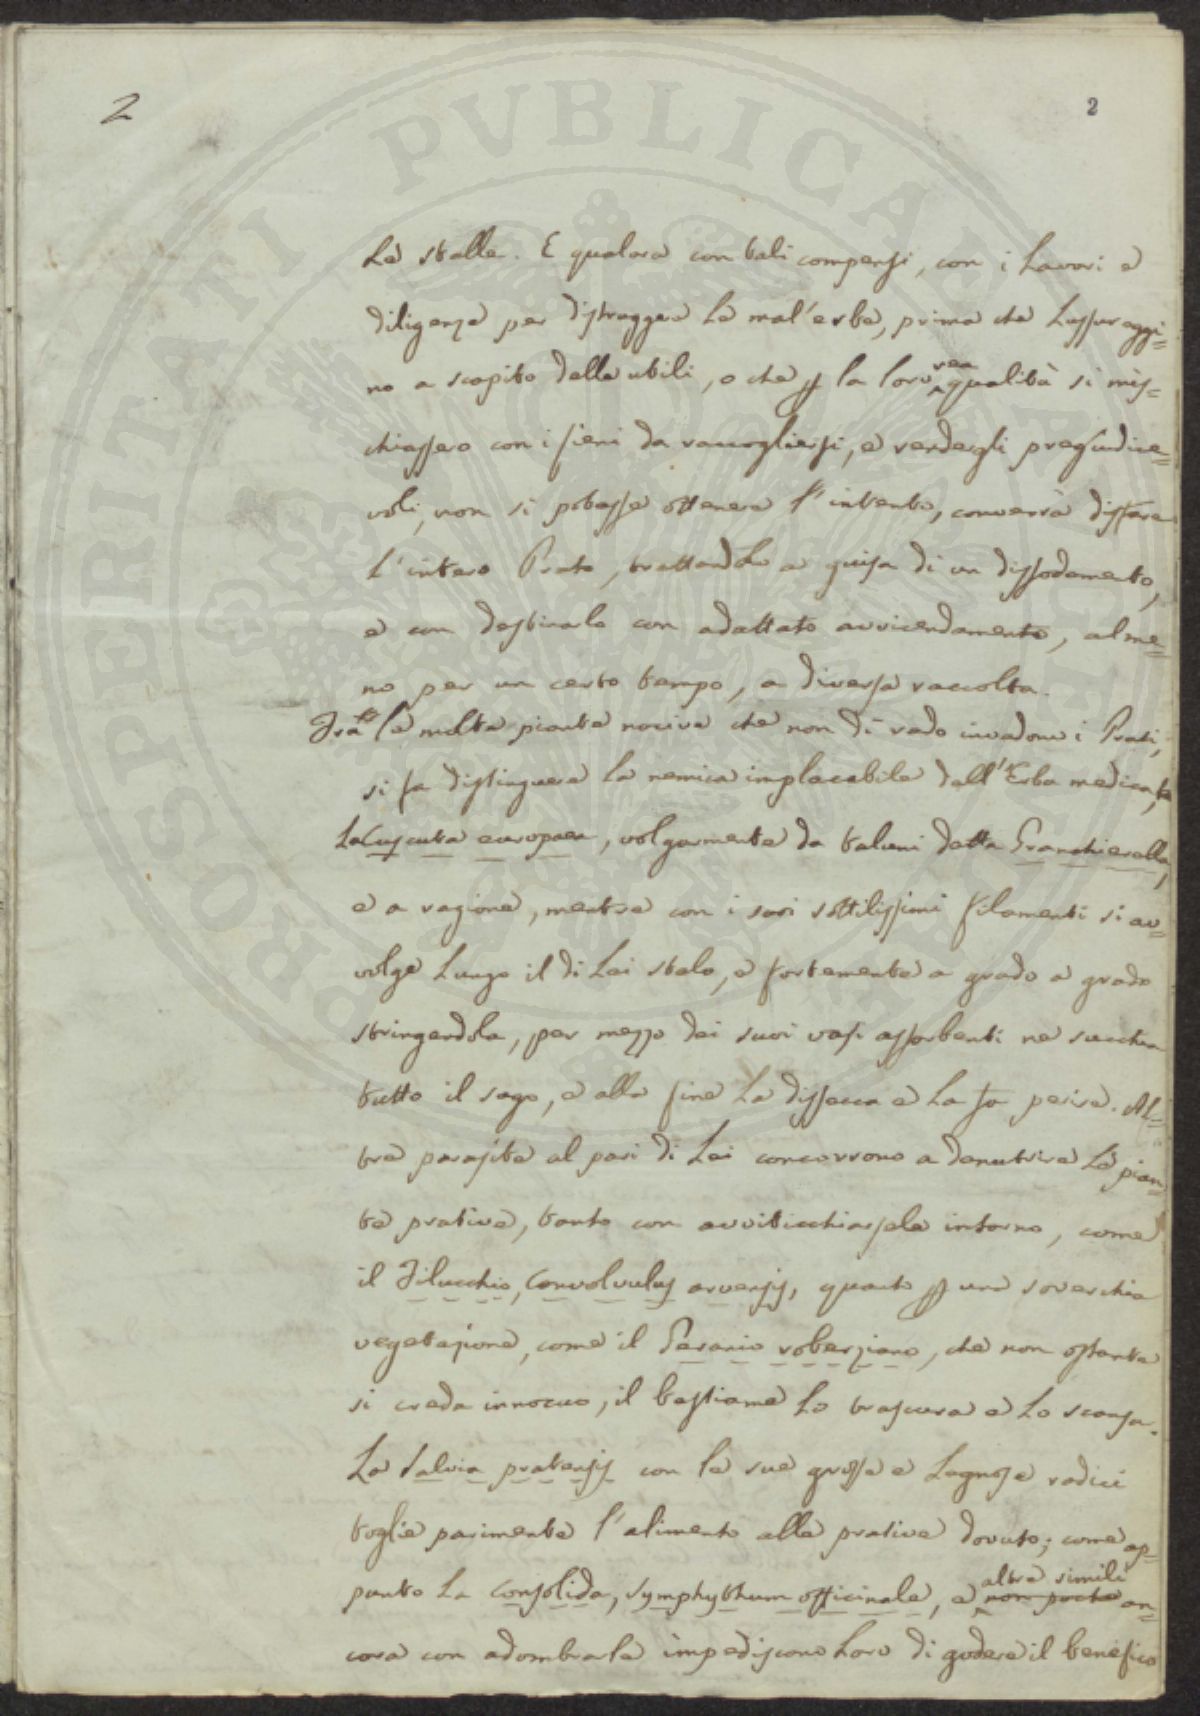 2
2
PROSPERITATI PVBLICAE AVGENDAE
le stalle. E qualora con tali compensi, con i lavori e
diligenze per distruggere le mal'erbe, prima che lussureggi=
no a scapito delle utili, o che p la loro rea qualità si mis=
chiassero con i fieni da raccogliersi, e rendergli pregiudice=
voli, non si potesse ottenere l'intento, converrà disfare
l'intero Prato, trattandolo a guisa di un dissodamento,
e con destinarlo con adattato avvicendamento, alme=
no per un certo tempo, a diversa raccolta.
Fra le molte piante nocive che non di rado invadono i Prati,
si fa distinguere la nemica implacabile dell'Erba medica,
La Cuscuta europaea, volgarmente da taluni detta Granchierella,
e a ragione, mentre con i suoi sottilissimi filamenti si av=
volge lungo il di lei stelo, e fortemente a grado a grado
stringendola, per mezzo dei suoi vasi assorbenti ne succhia
tutto il sugo, e alla fine la dissecca e la fa perire. Al=
tre parasite al pari di lei concorrono a denutrire le pian=
te prative, tanto con avviticchiarsele intorno, come
il Filucchio, Convolvulus arvensis, quanto p una soverchia
vegetazione, come il Geranio roberziano, che non ostante
si creda innocuo, il bestiame lo trascura e lo scansa.
La Salvia pratensis con le sue grosse e legnose radici
toglie parimente l'alimento alle prative dovuto; come ap=
punto la Consolida, Symphythum officinale, e altre simili non poche an=
cora con adombrarle impediscono loro di godere il benefico